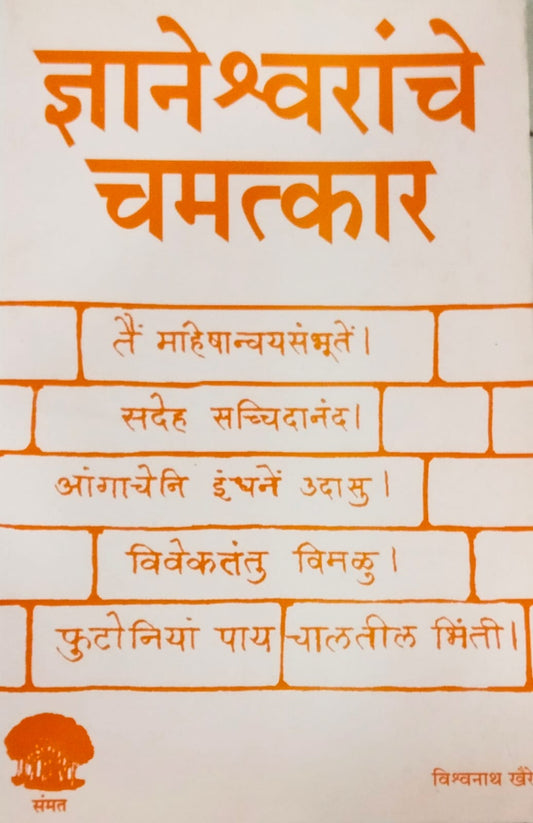 ज्ञानेश्वरांचे
चमत्कार
तैं माहेषान्वयसंभूतें।
सदेह सच्चिदानंद।
आंगाचेनि इंधनें उदासु।
विवेकतंतु विमळु।
फुटोनियां पाय चालतील भिंती।
संमत
विश्वनाथ खैरे